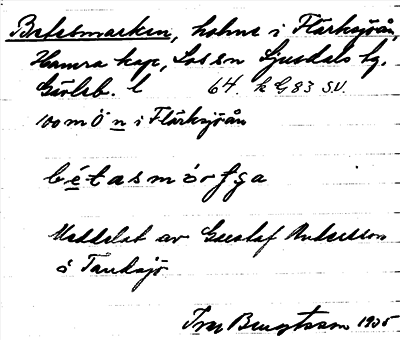 Betesmarken, holme i Flarksjöån,
Hamra kap, Los sn Ljusdals tg.
Gävleb. l 64. k G 83 S.V.
100 m Ö n i Flarksjöån
bétasmórfga
Meddelat av Gustaf Andersson
i Tandsjö
Bengtsson 1935